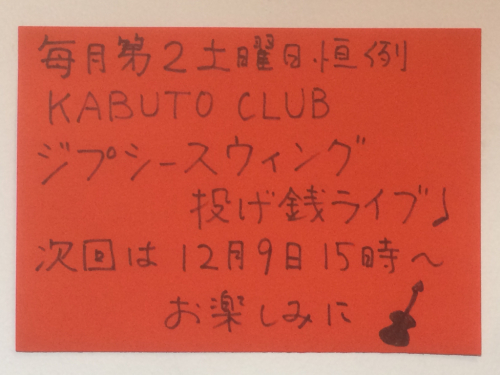 毎月第2土曜日恒例
KABUTO CLUB
ジプシースウィング
投げ銭ライブ♪
次回は12月9日15時～
お楽しみに